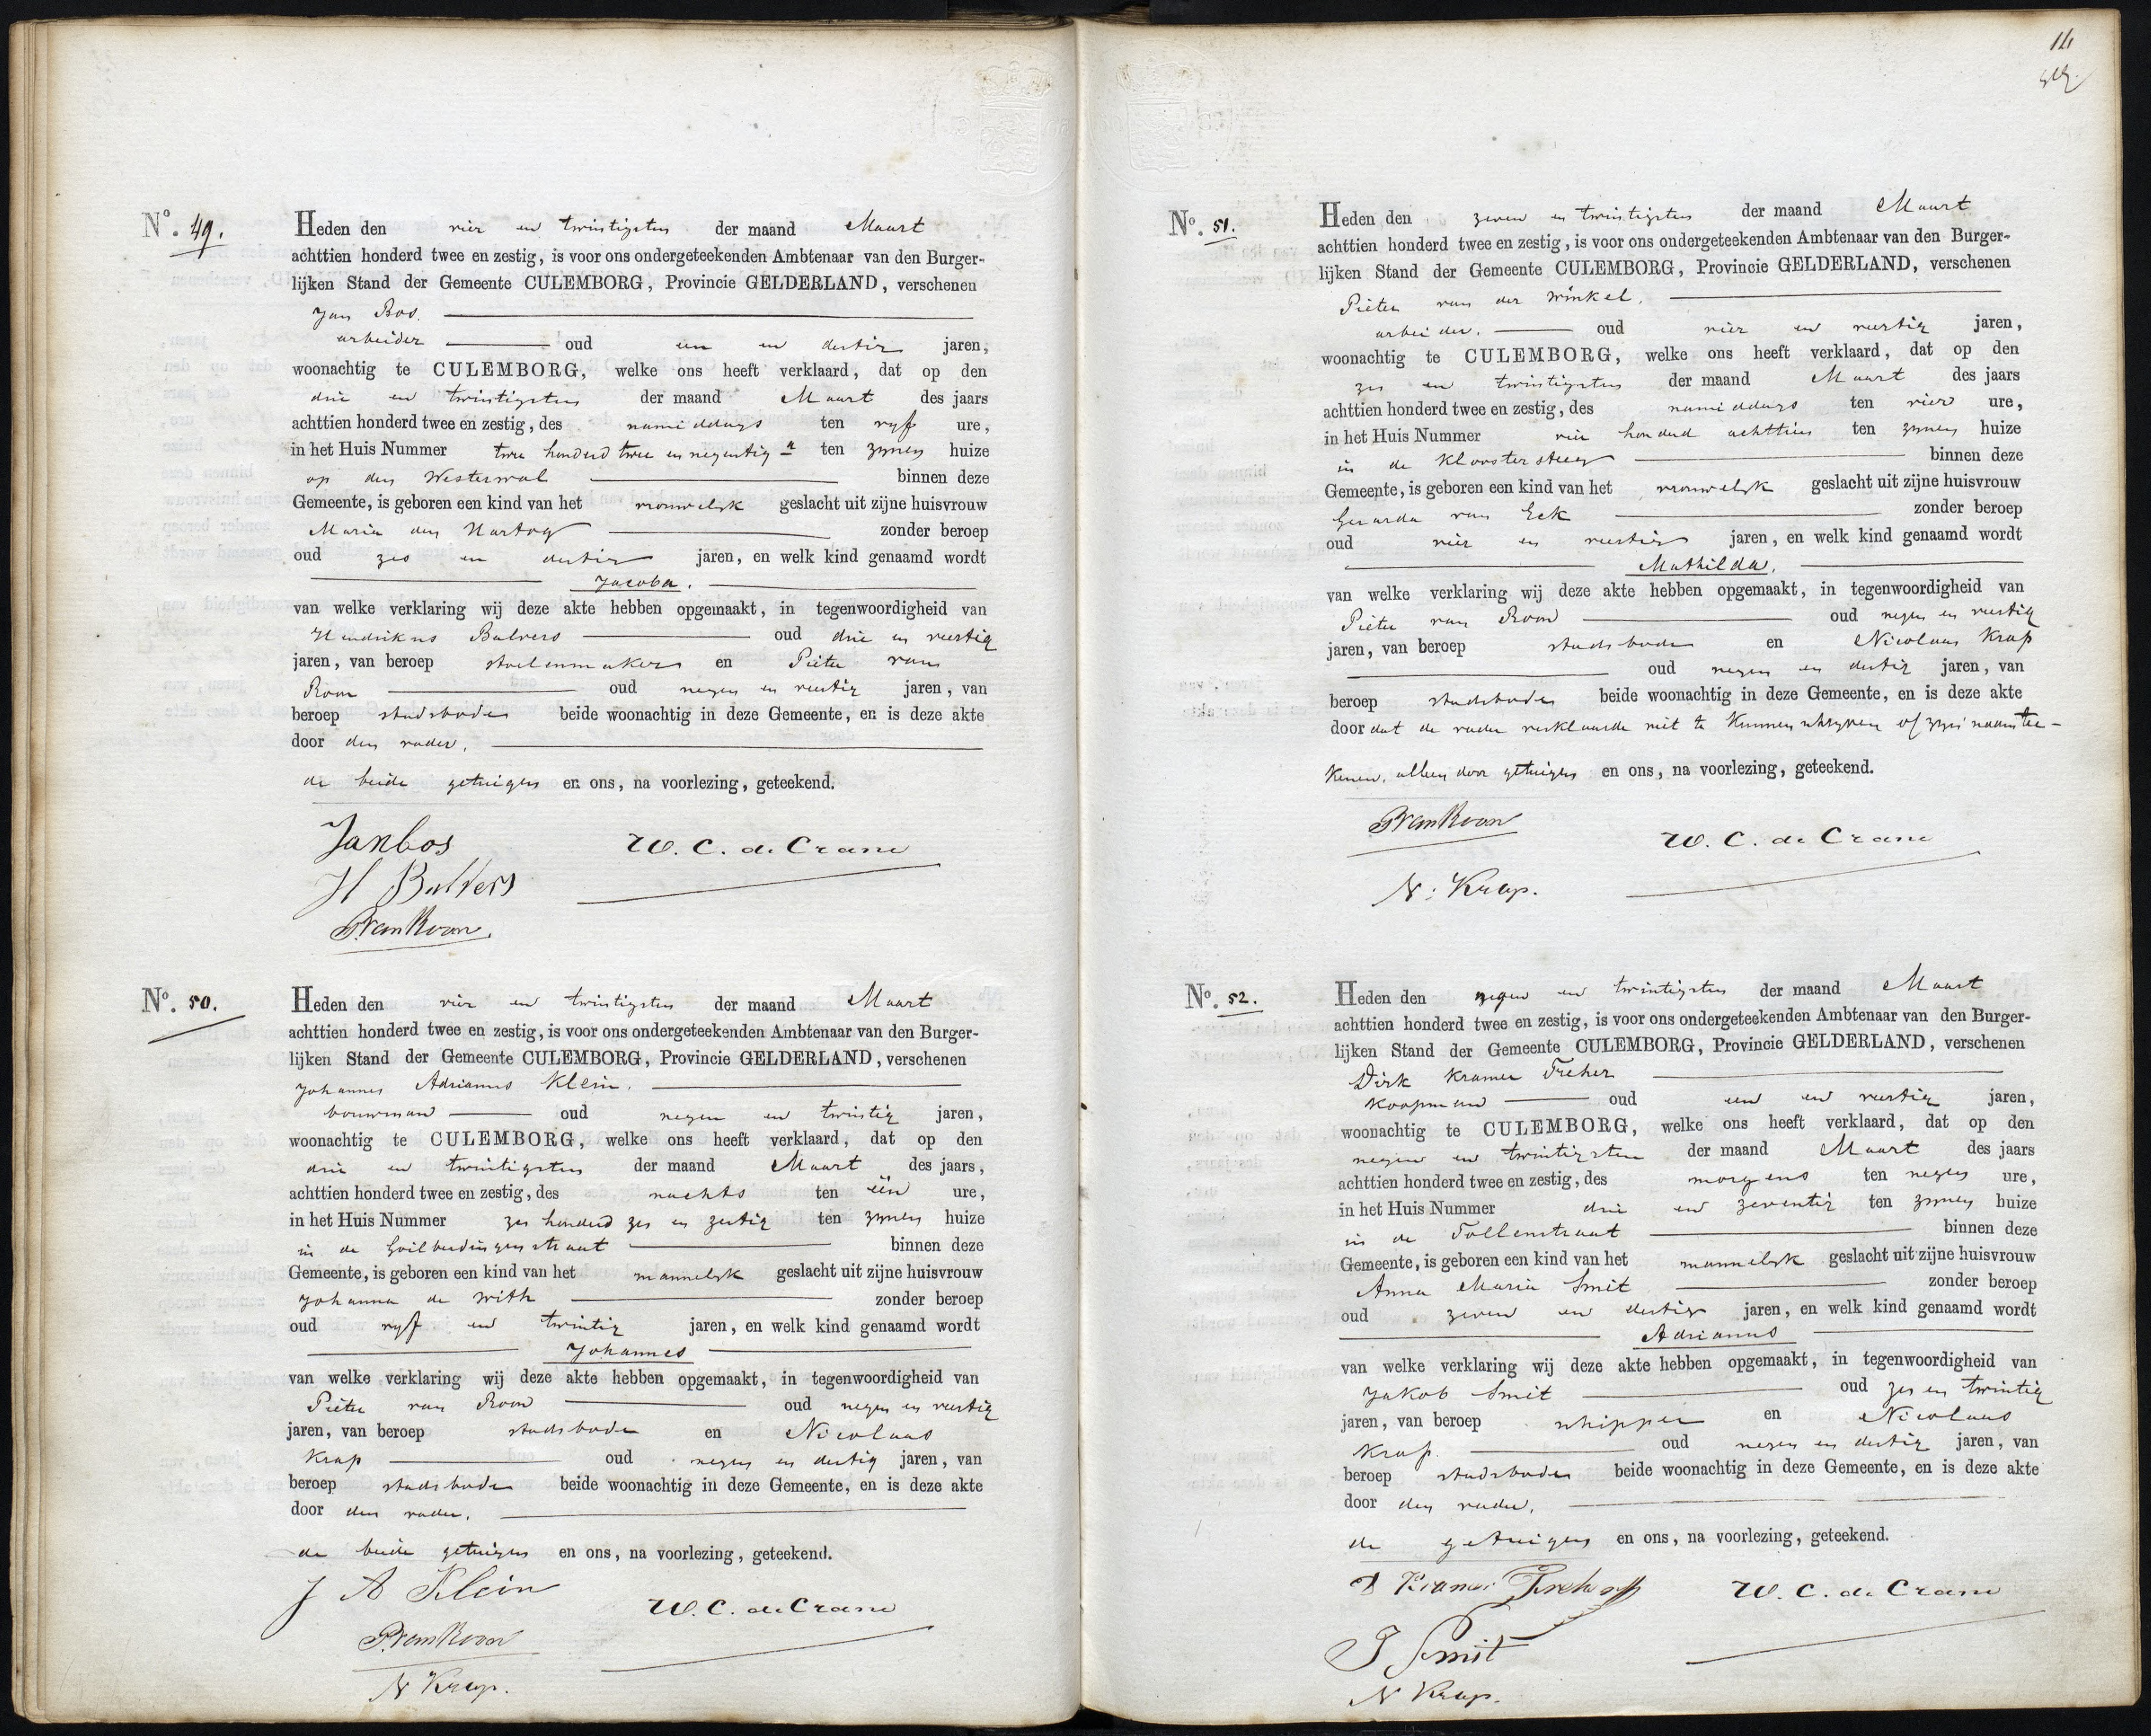 Nº. 49.
Heden den vier en twintigsten der maand Maart
achttien honderd twee en zestig, is voor ons ondergeteekenden Ambtenaar van den Burger-
lijken Stand der Gemeente CULEMBORG, Provincie GELDERLAND, verschenen
Jan Bos.
arbeider oud een en dertig jaren,
woonachtig te CULEMBORG, welke ons heeft verklaard, dat op den
drie en twintigsten der maand Maart des jaars
achttien honderd twee en zestig, des namiddags ten vyf ure,
in het Huis Nummer twee honderd twee en negentig a ten zynen huize
op den Westerwal binnen deze
Gemeente, is geboren een kind van het vrouwelyk geslacht uit zijne huisvrouw
Maria den Hartog zonder beroep
oud zes en dertig jaren, en welk kind genaamd wordt
Jacoba.
van welke verklaring wij deze akte hebben opgemaakt, in tegenwoordigheid van
Hendrikus Bulvers oud drie en veertig
jaren, van beroep stoelenmaker en Pieter van
Roon oud negen en veertig jaren, van
beroep stadsbode beide woonachtig in deze Gemeente, en is deze akte
door den vader,
de beide getuigen en ons, na voorlezing, geteekend.
Jan bos
W. C. de Crane
H Bulvers
P van Roon.
Nº. 50.
Heden den vier en twintigsten der maand Maart
achttien honderd twee en zestig, is voor ons ondergeteekenden Ambtenaar van den Burger-
lijken Stand der Gemeente CULEMBORG, Provincie GELDERLAND, verschenen
Johannes Adrianus Klein.
bouwman oud negen en twintig jaren,
woonachtig te CULEMBORG, welke ons heeft verklaard, dat op den
drie en twintigsten der maand Maart des jaars,
achttien honderd twee en zestig, des nachts ten één ure,
in het Huis Nummer zes honderd zes en zestig ten zynen huize
in de Goilberdingenstraat binnen deze
Gemeente, is geboren een kind van het mannelyk geslacht uit zijne huisvrouw
Johanna de With zonder beroep
oud vyf en twintig jaren, en welk kind genaamd wordt
Johannes
van welke verklaring wij deze akte hebben opgemaakt, in tegenwoordigheid van
Pieter van Roon oud negen en veertig
jaren, van beroep stadsbode en Nicolaas
Krap oud negen en dertig jaren, van
beroep stadsbode beide woonachtig in deze Gemeente, en is deze akte
door den vader,
de beide getuigen en ons, na voorlezing, geteekend.
J A Klein
W. C. de Crane
P van Roon
N Krap.
14
Nº. 51.
Heden den zeven en twintigsten der maand Maart
achttien honderd twee en zestig, is voor ons ondergeteekenden Ambtenaar van den Burger-
lijken Stand der Gemeente CULEMBORG, Provincie GELDERLAND, verschenen
Pieter van der Winkel.
arbeider. oud vier en veertig jaren,
woonachtig te CULEMBORG, welke ons heeft verklaard, dat op den
zes en twintigsten der maand Maart des jaars
achttien honderd twee en zestig, des namiddags ten vier ure,
in het Huis Nummer vier honderd achttien ten zynen huize
in de Kloostersteeg binnen deze
Gemeente, is geboren een kind van het vrouwelyk geslacht uit zijne huisvrouw
Gerarda van Eck zonder beroep
oud vier en veertig jaren, en welk kind genaamd wordt
Mathilda.
van welke verklaring wij deze akte hebben opgemaakt, in tegenwoordigheid van
Pieter van Roon oud negen en veertig
jaren, van beroep stadsbode en Nicolaas Krap
oud negen en dertig jaren, van
beroep stadsbode beide woonachtig in deze Gemeente, en is deze akte
door dat de vader verklaarde niet te kunnen schryven of zyn' naam tee-
kenen, alleen door getuigen en ons, na voorlezing, geteekend.
P van Roon
W. C. de Crane
N. Krap.
Nº. 52.
Heden den negen en twintigsten der maand Maart
achttien honderd twee en zestig, is voor ons ondergeteekenden Ambtenaar van den Burger-
lijken Stand der Gemeente CULEMBORG, Provincie GELDERLAND, verschenen
Dirk Kramer Freher
Koopman oud een en veertig jaren,
woonachtig te CULEMBORG, welke ons heeft verklaard, dat op den
negen en twintigsten der maand Maart des jaars
achttien honderd twee en zestig, des morgens ten negen ure,
in het Huis Nummer drie en zeventig ten zynen huize
in de Tollenstraat binnen deze
Gemeente, is geboren een kind van het mannelyk geslacht uit zijne huisvrouw
Anna Maria Smit zonder beroep
oud zeven en dertig jaren, en welk kind genaamd wordt
Adrianus
van welke verklaring wij deze akte hebben opgemaakt, in tegenwoordigheid van
Jakob Smit oud zes en twintig
jaren, van beroep schipper en Nicolaas
Krap oud negen en dertig jaren, van
beroep stadsbode beide woonachtig in deze Gemeente, en is deze akte
door den vader,
de getuigen en ons, na voorlezing, geteekend.
D Kramer Freher
W. C. de Crane
J Smit
N Krap.